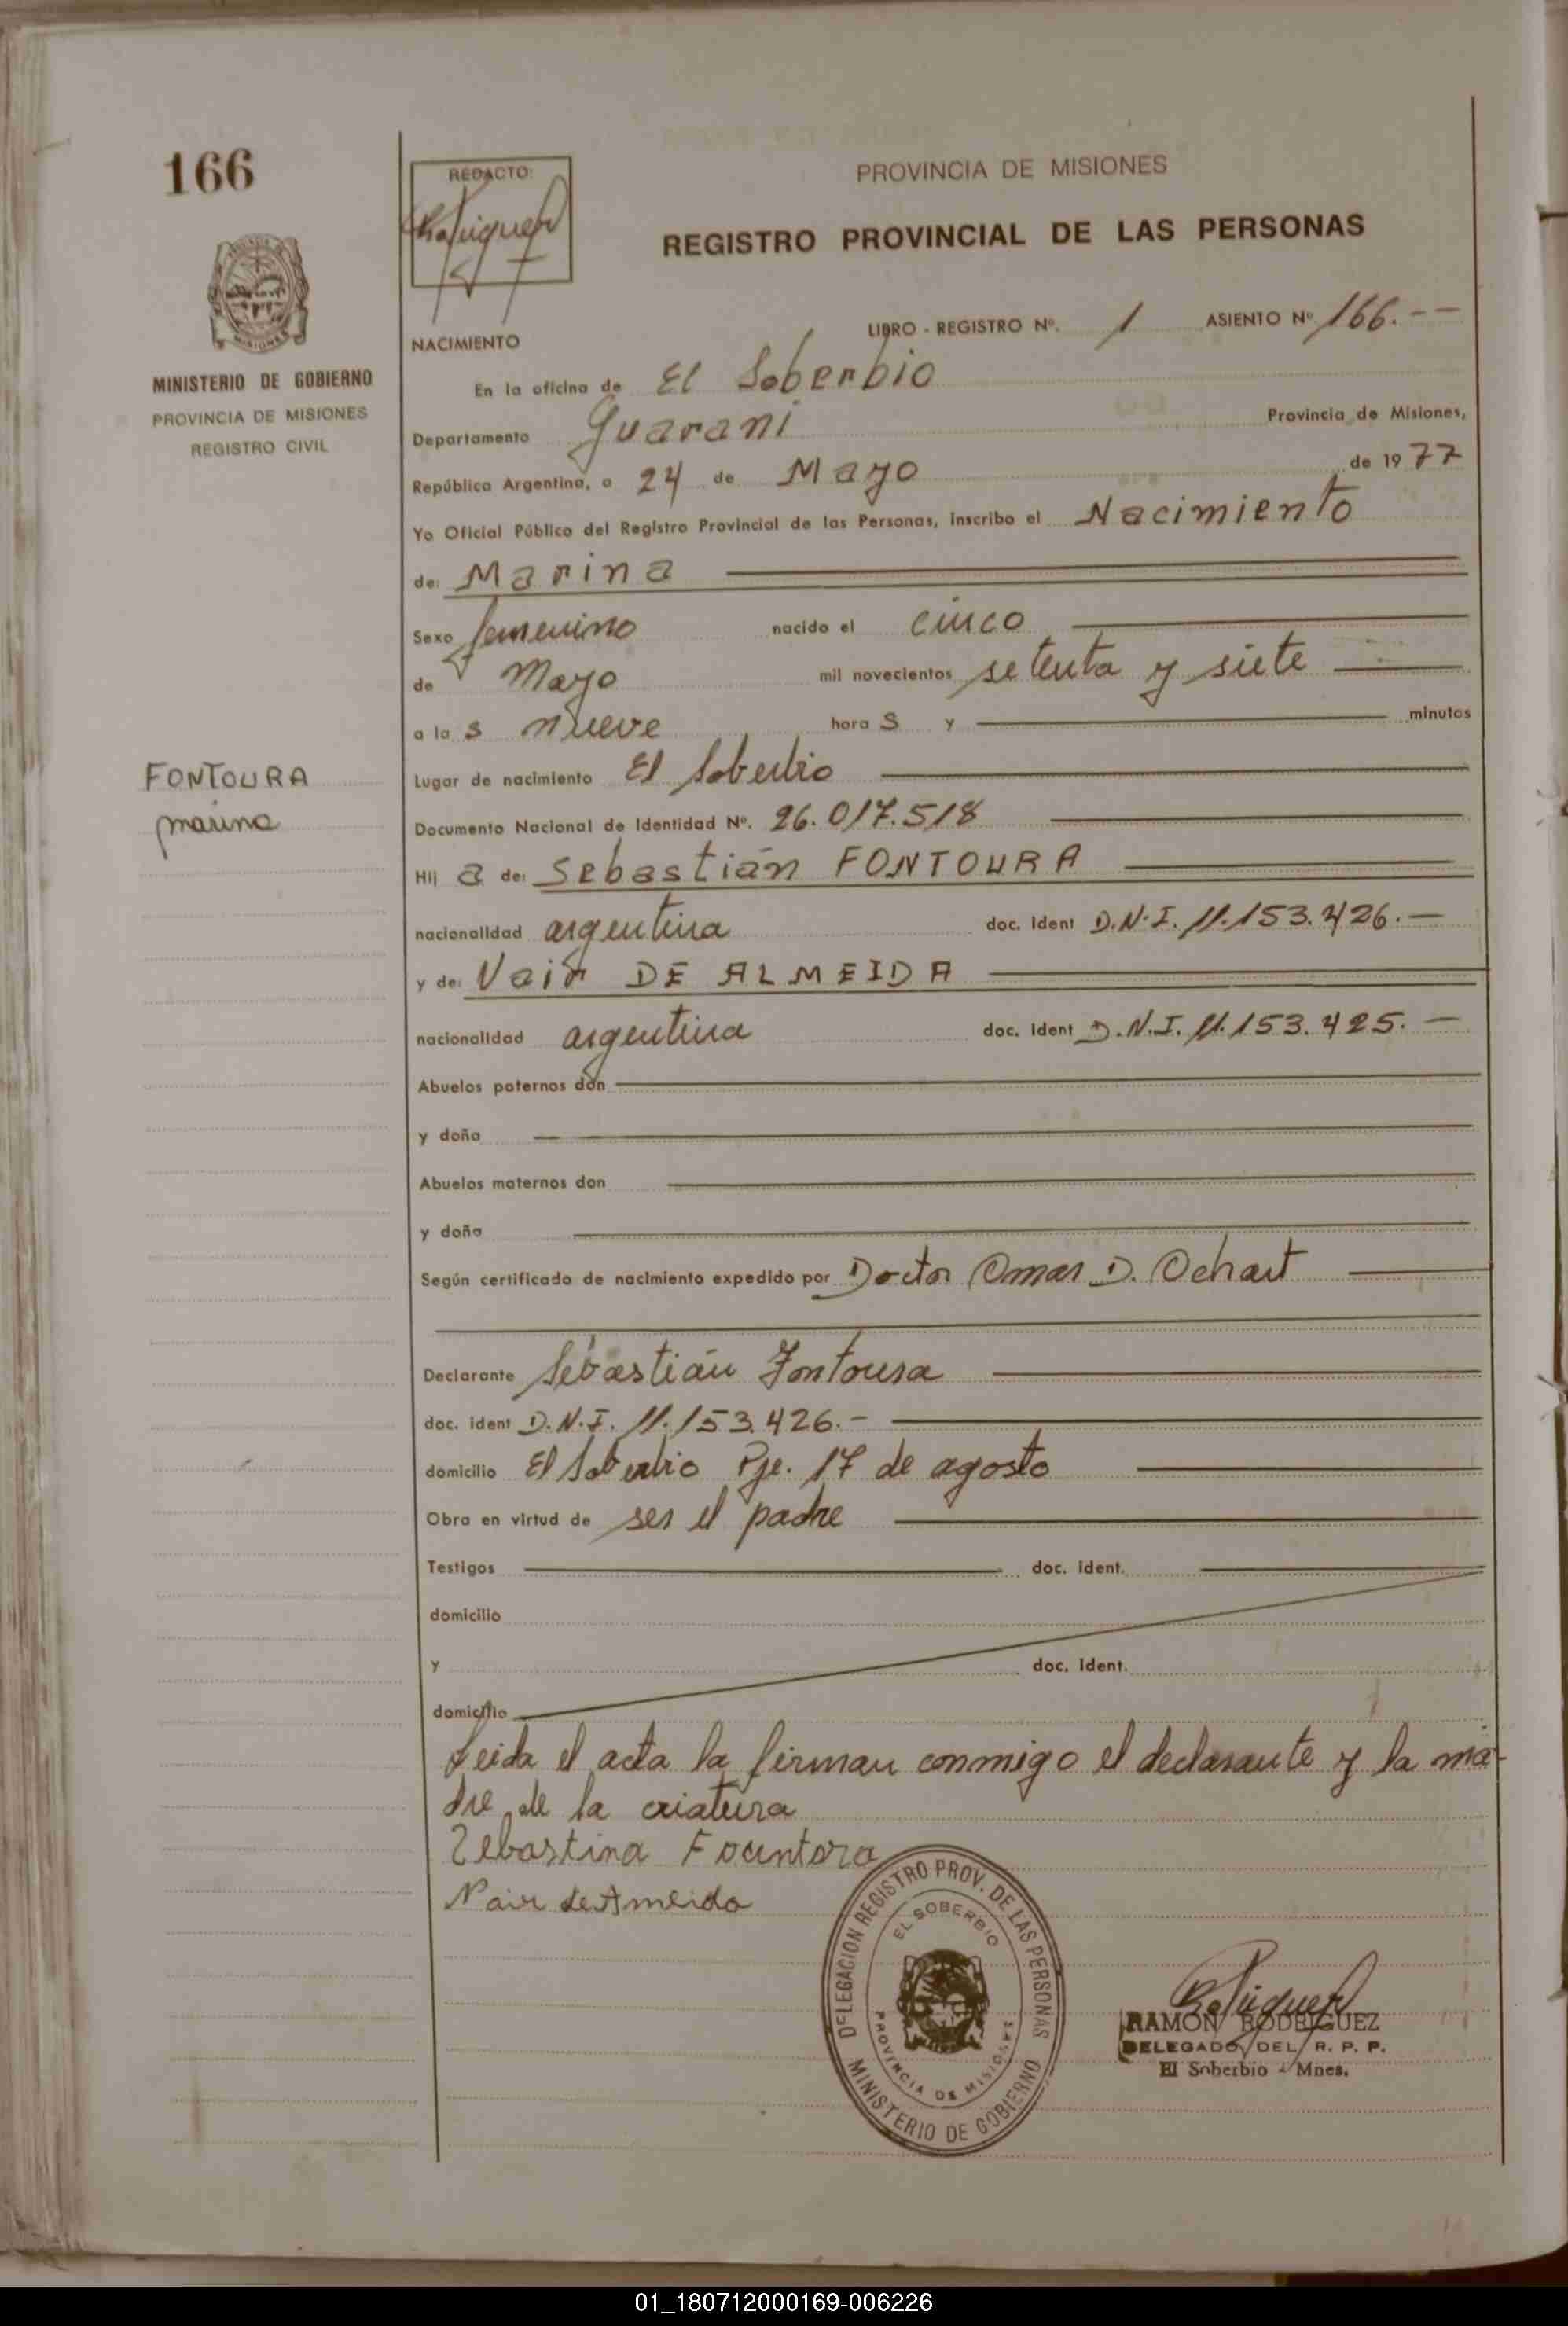 166
REDACTO:
PROVINCIA DE MISIONES
REGISTRO PROVINCIAL DE LAS PERSONAS
MISIONES
MINISTERIO DE GOBIERNO
PROVINCIA DE MISIONES
REGISTRO CIVIL
LIBRO - REGISTRO Nº. 1 ASIENTO Nº 166.--
NACIMIENTO
En la oficina de El Soberbio
Departamento Guarani Provincia de Misiones,
República Argentina, a 24 de Mayo de 1977
Yo Oficial Público del Registro Provincial de las Personas, inscribo el Nacimiento
de: Marina
Sexo femenino nacido el cinco
de Mayo mil novecientos setenta y siete
a las nueve horas y minutos
FONTOURA
marina
Lugar de nacimiento El Soberbio
Documento Nacional de Identidad Nº. 26.017.518
Hija de: Sebastián FONTOURA
nacionalidad argentina doc. Ident D.N.I. 11.153.426.—
y de: Nair DE ALMEIDA
nacionalidad argentina doc. Ident D.N.I. 11.153.425.—
Abuelos paternos don
y doña
Abuelos maternos don
y doña
Según certificado de nacimiento expedido por Doctor Omar D. Ochart
Declarante Sebastián Fontoura
doc. ident D.N.I. 11.153.426.-
domicilio El Soberbio Pje. 17 de agosto
Obra en virtud de ser el padre
Testigos doc. ident.
domicilio
y doc. Ident.
domicilio
Leida el acta la firman conmigo el declarante y la ma-
dre de la criatura
Zebastina Fountora
Nair de Ameida
DELEGACION REGISTRO PROV. DE LAS PERSONAS
EL SOBERBIO
PROVINCIA DE MISIONES
MINISTERIO DE GOBIERNO
RAMON RODRIGUEZ
DELEGADO DEL R. P. P.
El Soberbio - Mnes.
01_180712000169-006226